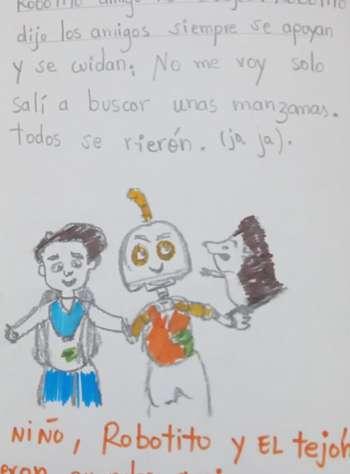 dijo los amigos siempre se apoyan
y se cuidan; No me voy solo
salí a buscar unas manzanas.
todos se rierón. (ja ja).
NIÑO, Robotito y EL tejón